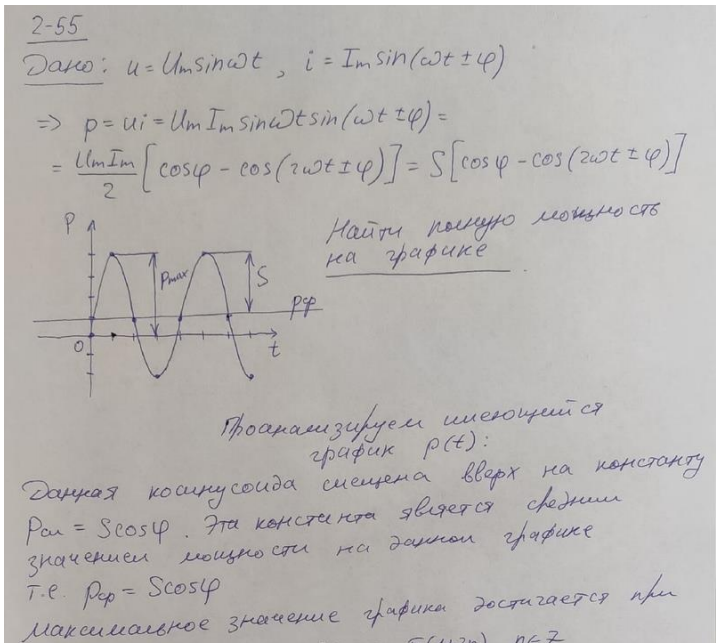 2-55
Дано: u = Uₘsinωt , i = Iₘsin(ωt ± φ)
=> p = ui = UₘIₘsinωt sin(ωt ± φ) =
= UₘIₘ/2 [cosφ - cos(2ωt ± φ)] = S[cosφ - cos(2ωt ± φ)]
Найти полную мощность
на графике
P
Pmax
S
Pср
0
t
Проанализируем имеющийся
график p(t):
Данная косинусоида смещена вверх на константу
Pсм = Scosφ. Эта константа является средним
значением мощности на данном графике
т.е. pср = Scosφ
Максимальное значение графика достигается при